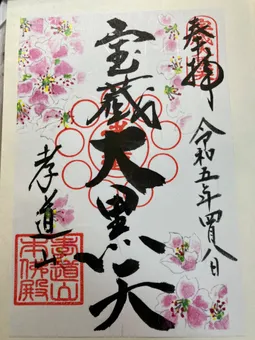 奉拝
令和五年四月八日
宝蔵大黒天
孝道山
孝道山
本仏殿